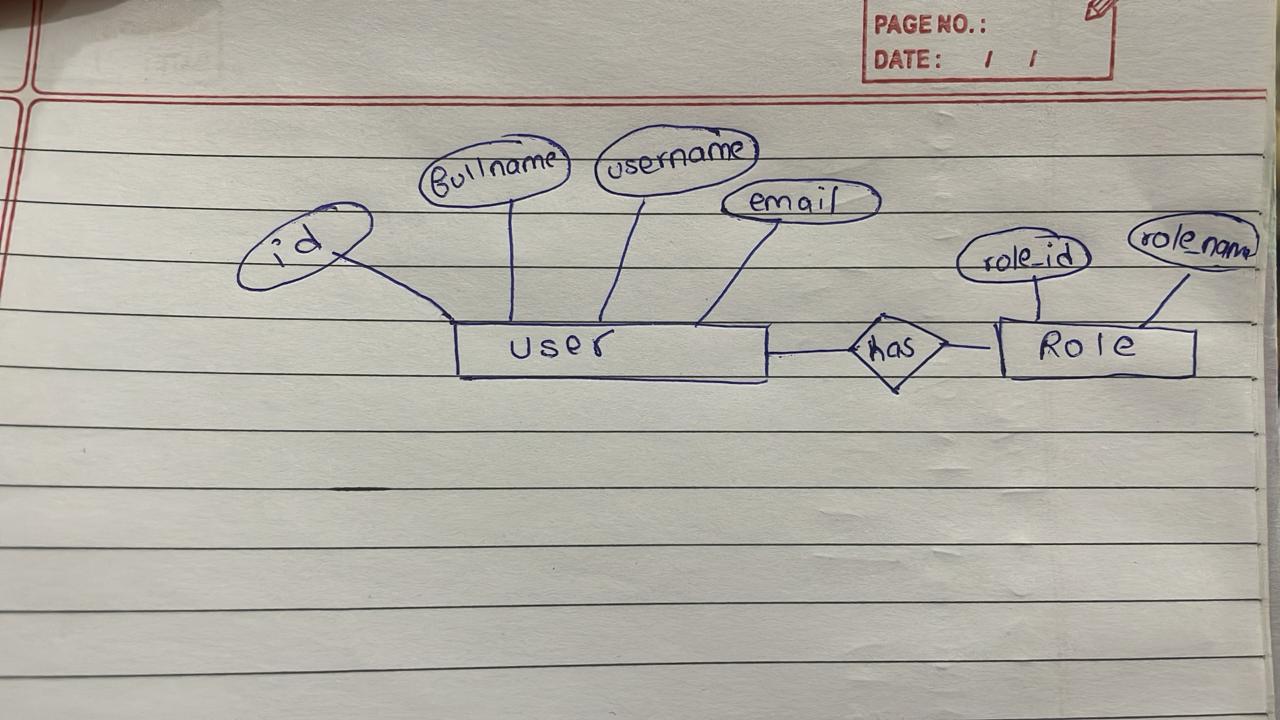 PAGE NO.:
DATE: / /
fullname
username
email
id
role_id
role_name
user
has
Role